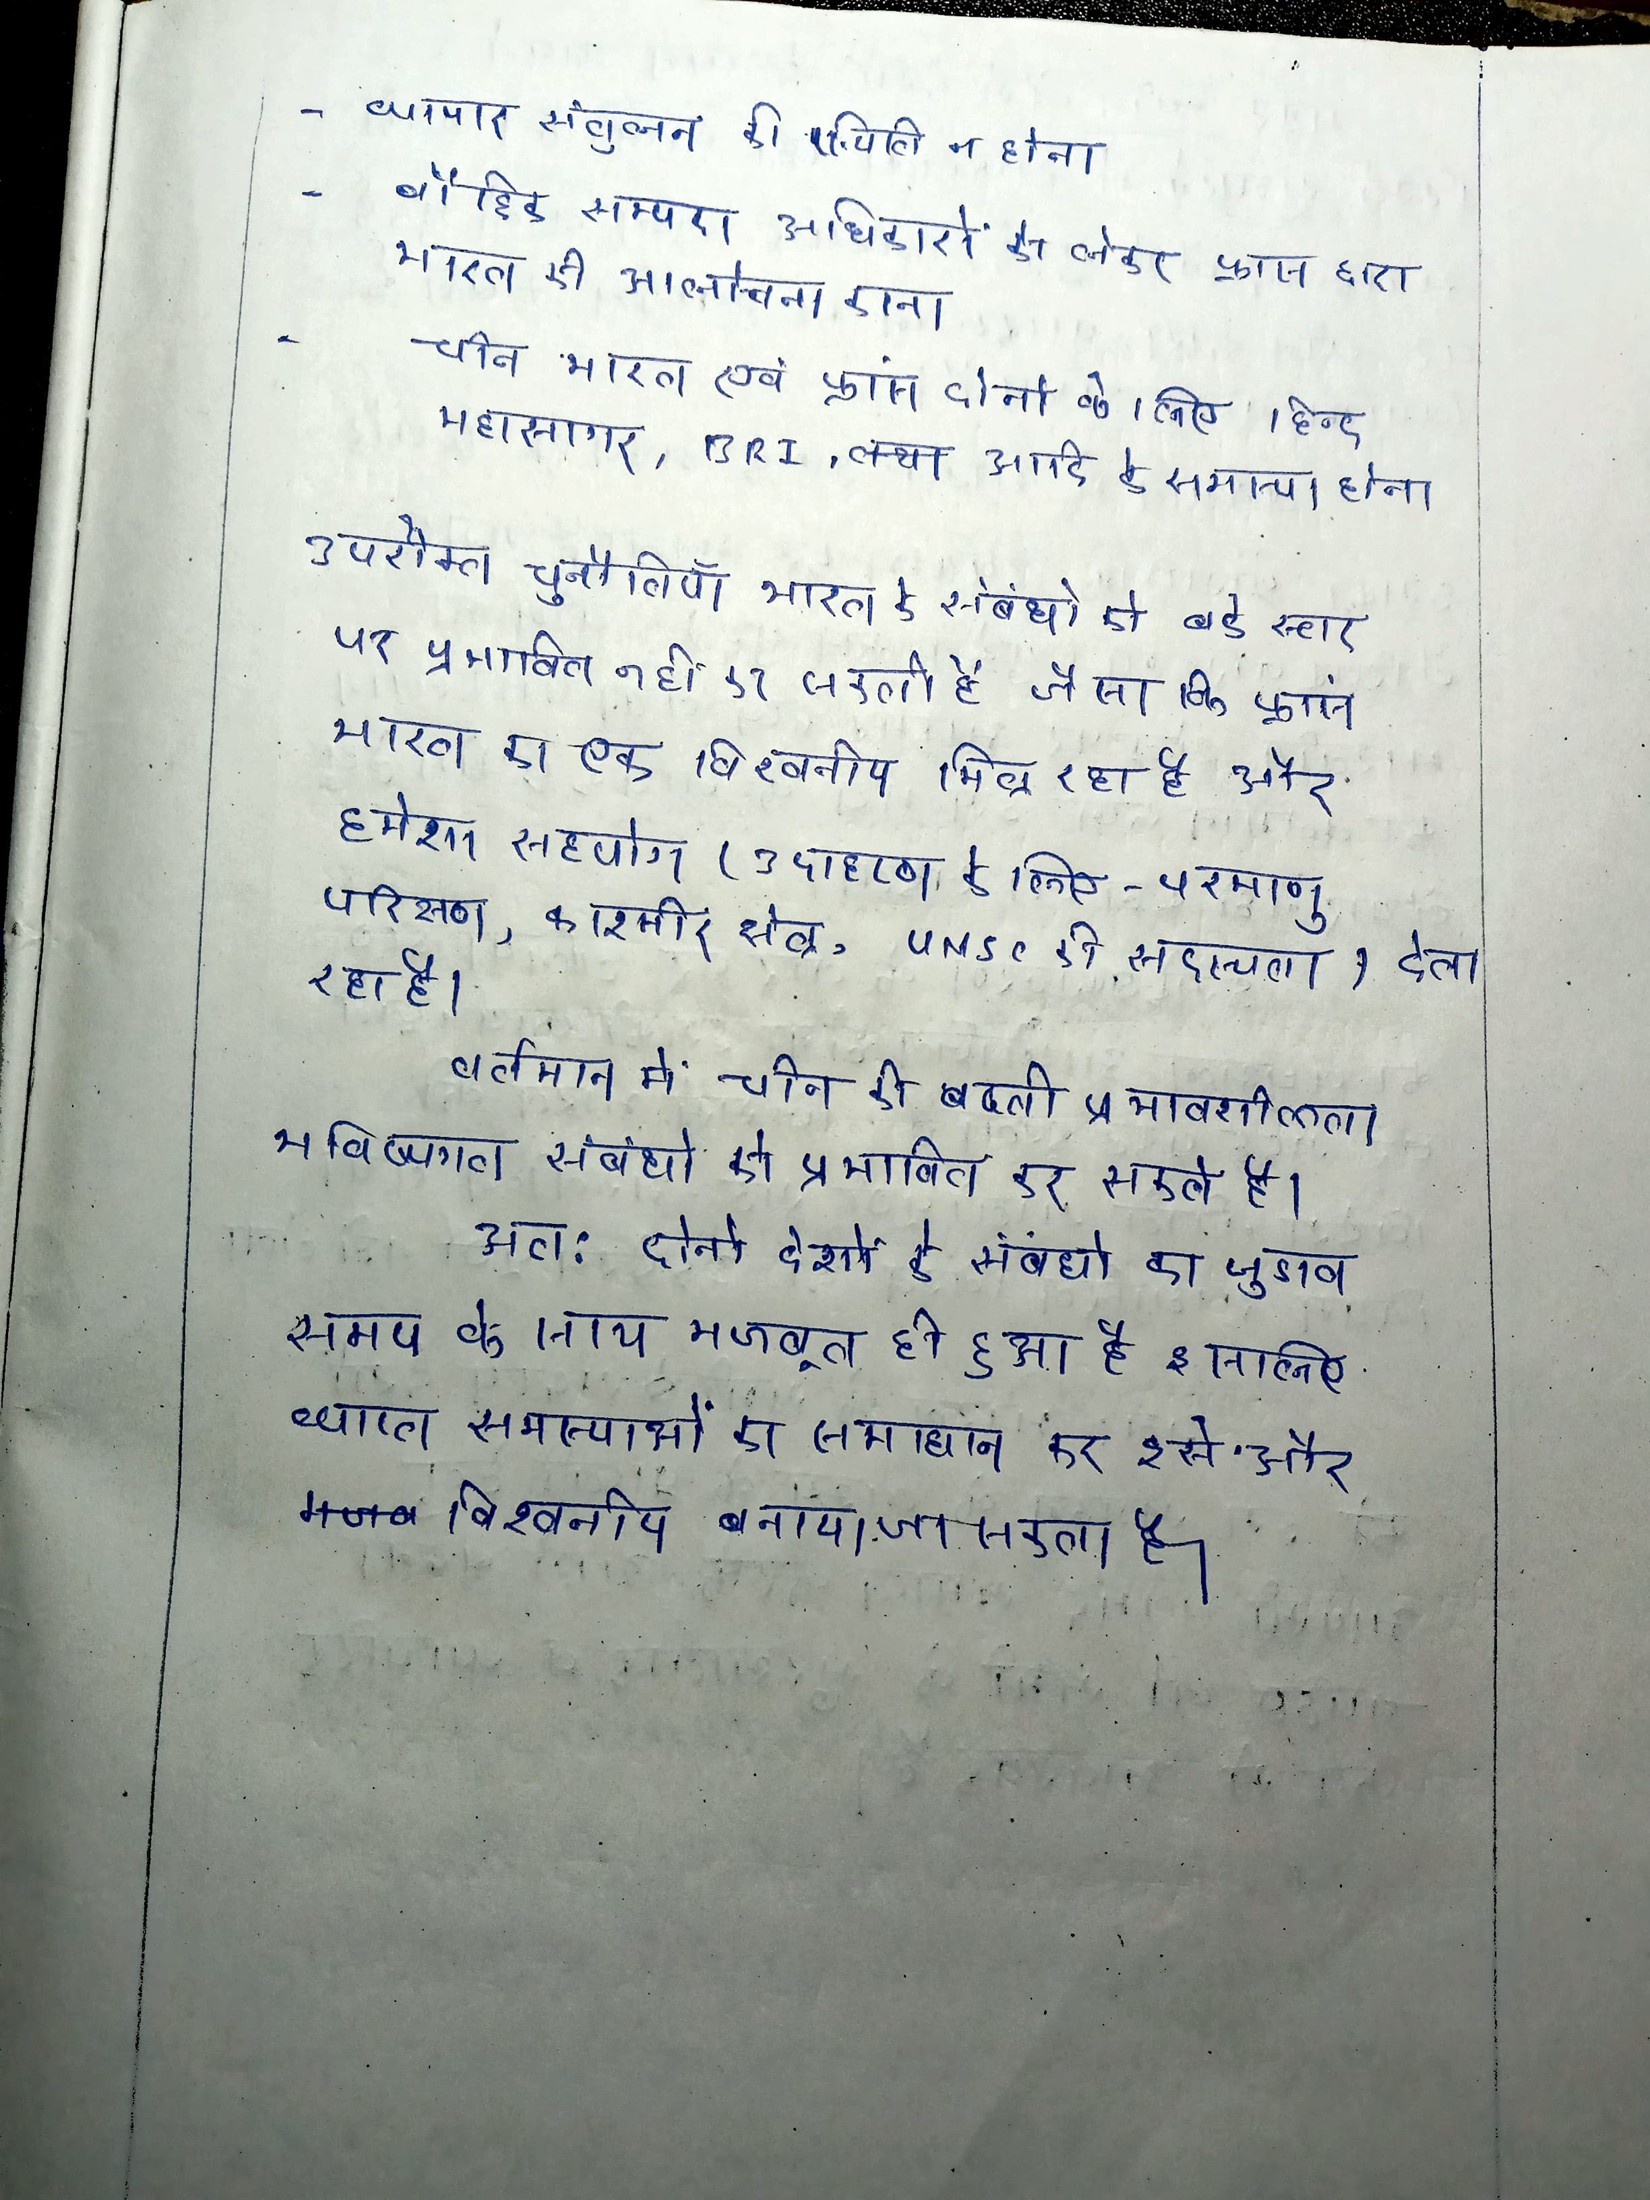 - व्यापार संतुलन की स्थिति न होना
- बौद्धिक सम्पदा अधिकारों को लेकर फ्रांस द्वारा
भारत की आलोचना करना
- चीन भारत एवं फ्रांस दोनों के लिए हिन्द
महासागर, BRI, आदि के समस्या होना
उपरोक्त चुनौतियाँ भारत के संबंधो को बडे स्तर
पर प्रभावित नहीं कर सकती है जैसा कि फ्रांस
भारत का एक विश्वनीय मित्र रहा है और
हमेशा सहयोग (उदाहरण के लिए - परमाणु
परिक्षण, काश्मीर क्षेत्र, UNSC की सदस्यता) देता
रहा है।
वर्तमान में चीन की बढती प्रभावशीलता
भविष्यगत संबंधो को प्रभावित कर सकते है।
अतः दोनो देशों के संबंधो का जुडाव
समय के साथ मजबूत ही हुआ है इसलिए
व्याप्त समस्याओं का समाधान कर इसे और
विश्वनीय बनाया जा सकता है।